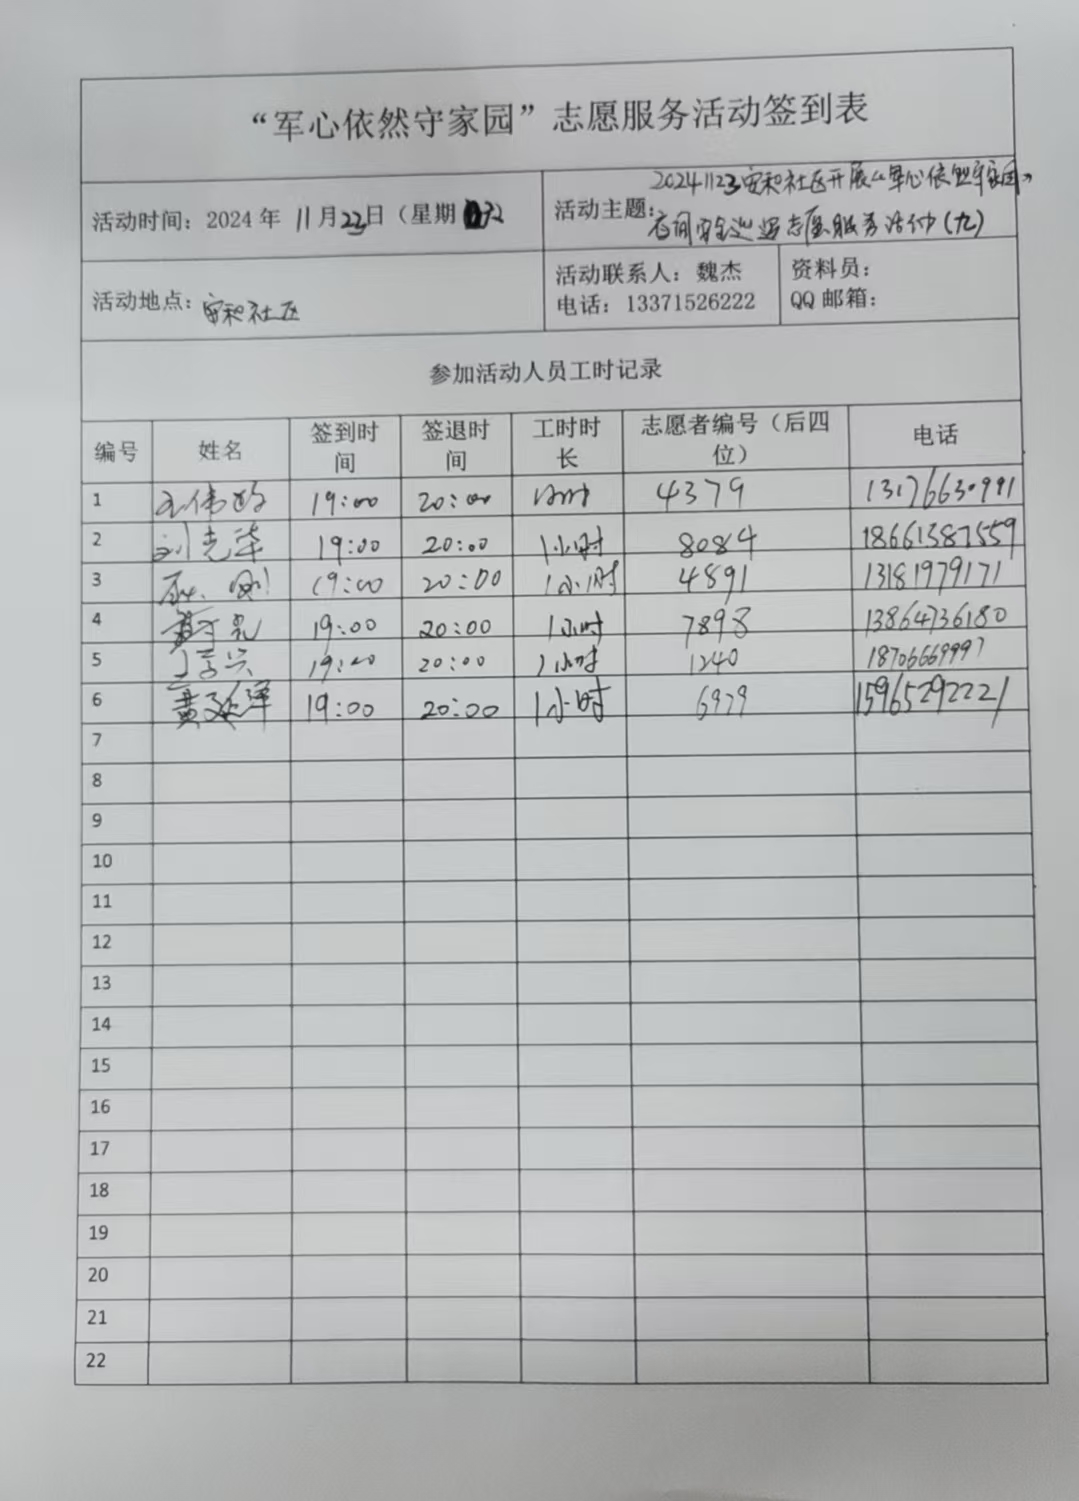 “军心依然守家园”志愿服务活动签到表
活动时间：2024年 11月23日（星期
活动主题：20241123安和社区开展“军心依然守家园”
夜间安全巡逻志愿服务活动（九）
活动地点：安和社区
活动联系人：魏杰
电话：13371526222
资料员：
QQ邮箱：
参加活动人员工时记录
编号 姓名 签到时间 签退时间 工时时长 志愿者编号（后四位） 电话
1 19:00 20:00 4379 13176630991
2 刘光华 19:00 20:00 1小时 8084 18661387559
3 19:00 20:00 1小时 4891 13181979171
4 19:00 20:00 1小时 7898 13864736180
5 19:00 20:00 1小时 1240 18706669997
6 黄延泽 19:00 20:00 1小时 6979 15965292221
7
8
9
10
11
12
13
14
15
16
17
18
19
20
21
22